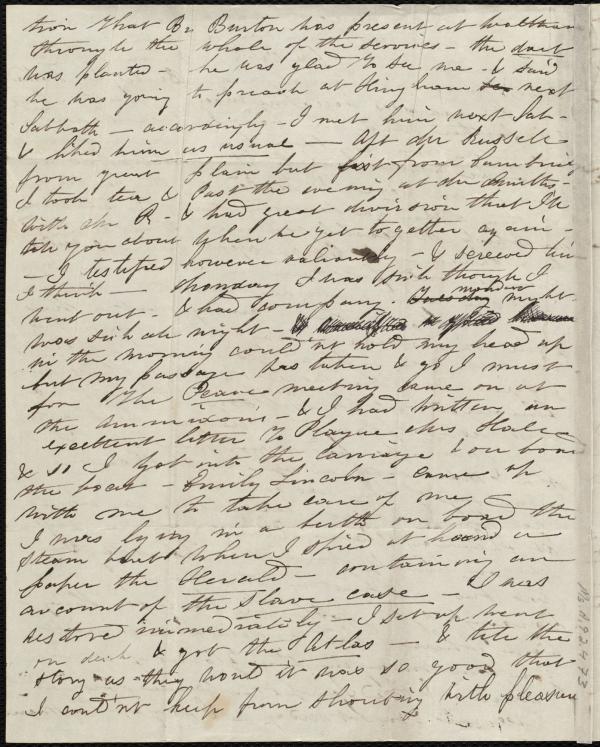 tion that Br Burton was present at Waltham
through the whole of the services - the dart
was planted - he was glad to see me & said
he was going to preach at Hingham next
Sabbath - accordingly - I met him next Sab-
& liked him as usual - Aft Mr Russell
from great plain but from
I took tea & past the evening at Mr Smiths -
with Mr R - & had great division that I'll
tell you about when we get together again -
- I testified however valiantly - & screwed him
I think - Monday I was sick though I
went out - & had company. monday night
was sick all night -
in the morning could'nt hold my head up
but my passage was taken & go I must
for the Peace meeting came on at
the - & I had written an
excellent letter to Plague Mrs Hale
& so I got into the carriage & on board
the boat - Emily Lincoln - came up
with me to take care of me
I was lying in a birth on board the
Steam boat when I spied at hand a
paper the Herald - containing an
account of the slave case - I was
restored immediately - I set up went
on deck & got the Atlas - & tile the
story as they word it was so good that
I could'nt keep from shouting with pleasure
Ms.A.9.2.4.73